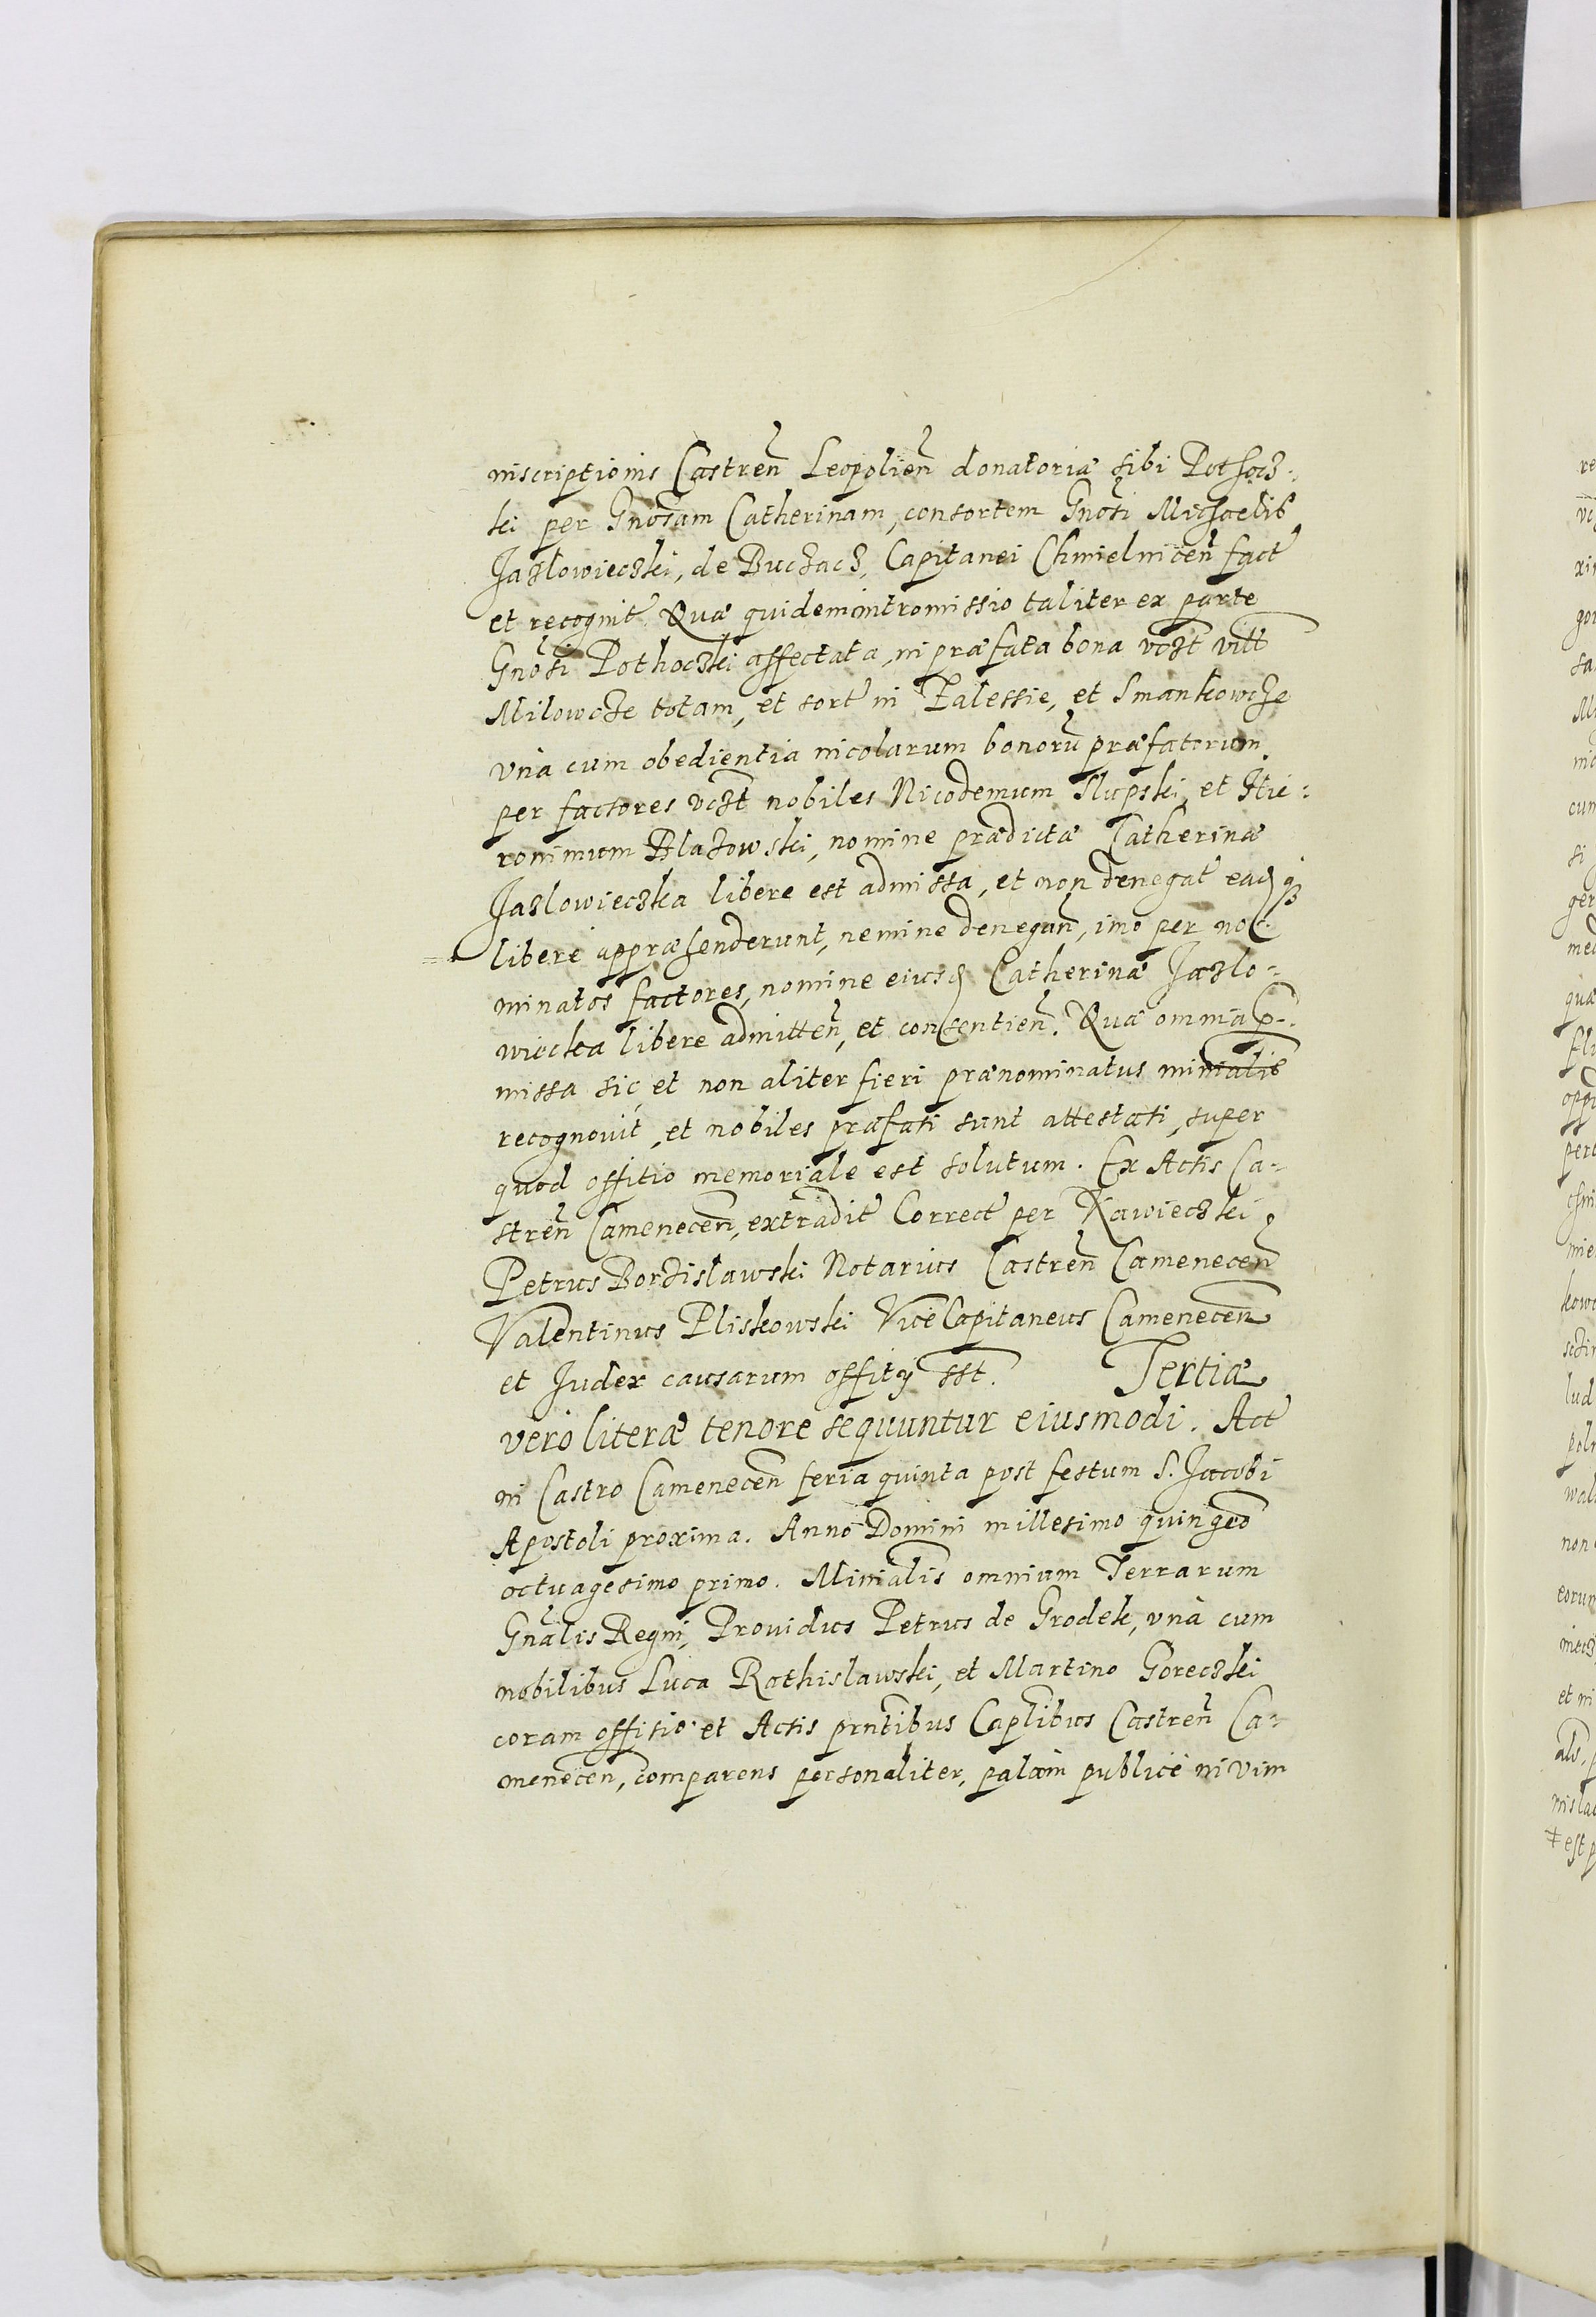 inscriptionis Castren̄ Leopolien̄ donatoriæ sibi Pothocz-
ki per Gnosam Catherinam, consortem Gnosi Michaelis
Jazlowieczki, de Buczacz, Capitanei Chmielnicen̄ fact
et recognit. Quæ quidem intromissio taliter ex parte
Gnosi Pothoczki affectata, in præfata bona vczt vill
Milowcze totam, et sort in Zalessie, et Smankowcze
vnà cum obedientia incolarum bonorū præfatorum
per factores vczt nobiles Nicodemum Slupski, et Hie-
ronimum Blazowski, nomine prædictæ Catherinæ
Jazlowieczka libere est admissa, et non denegat eaqꝫ
liberè appræhenderunt, nemine denegan̄, imò per no-
minatos factores, nomine eiusd Catherinæ Jazlo-
wiecka libere admitten̄, et consentien̄. Quæ omnia p-
missa sic, et non aliter fieri prænominatus minialis
recognovit, et nobiles præfati sunt attestati, super
quod offitio memoriale est solutum. Ex Actis Ca-
stren̄ Camenecen̄, extradit Correct per Kawieczki
Petrus Bordzislawski Notarius Castren̄ Camenecen̄
Valentinus Pliskowski ViceCapitaneus Camenecen̄
et Judex causarum offitij sst. Tertiæ
verò literæ tenore sequuntur eiusmodi. Act
in Castro Camenecen̄ feria quinta post festum S. Jacobi
Apostoli proxima. Anno Domini millesimo quingeo
octuagesimo primo. Minialis omnium Terrarum
Gnālis Regni, Providus Petrus de Grodek, vnà cum
nobilibus Luca Rothislawski, et Martino Goreczki
coram offitio et Actis prntibus Caplibus Castren̄ Ca-
menecen, comparens personaliter, palàm publicè in vim